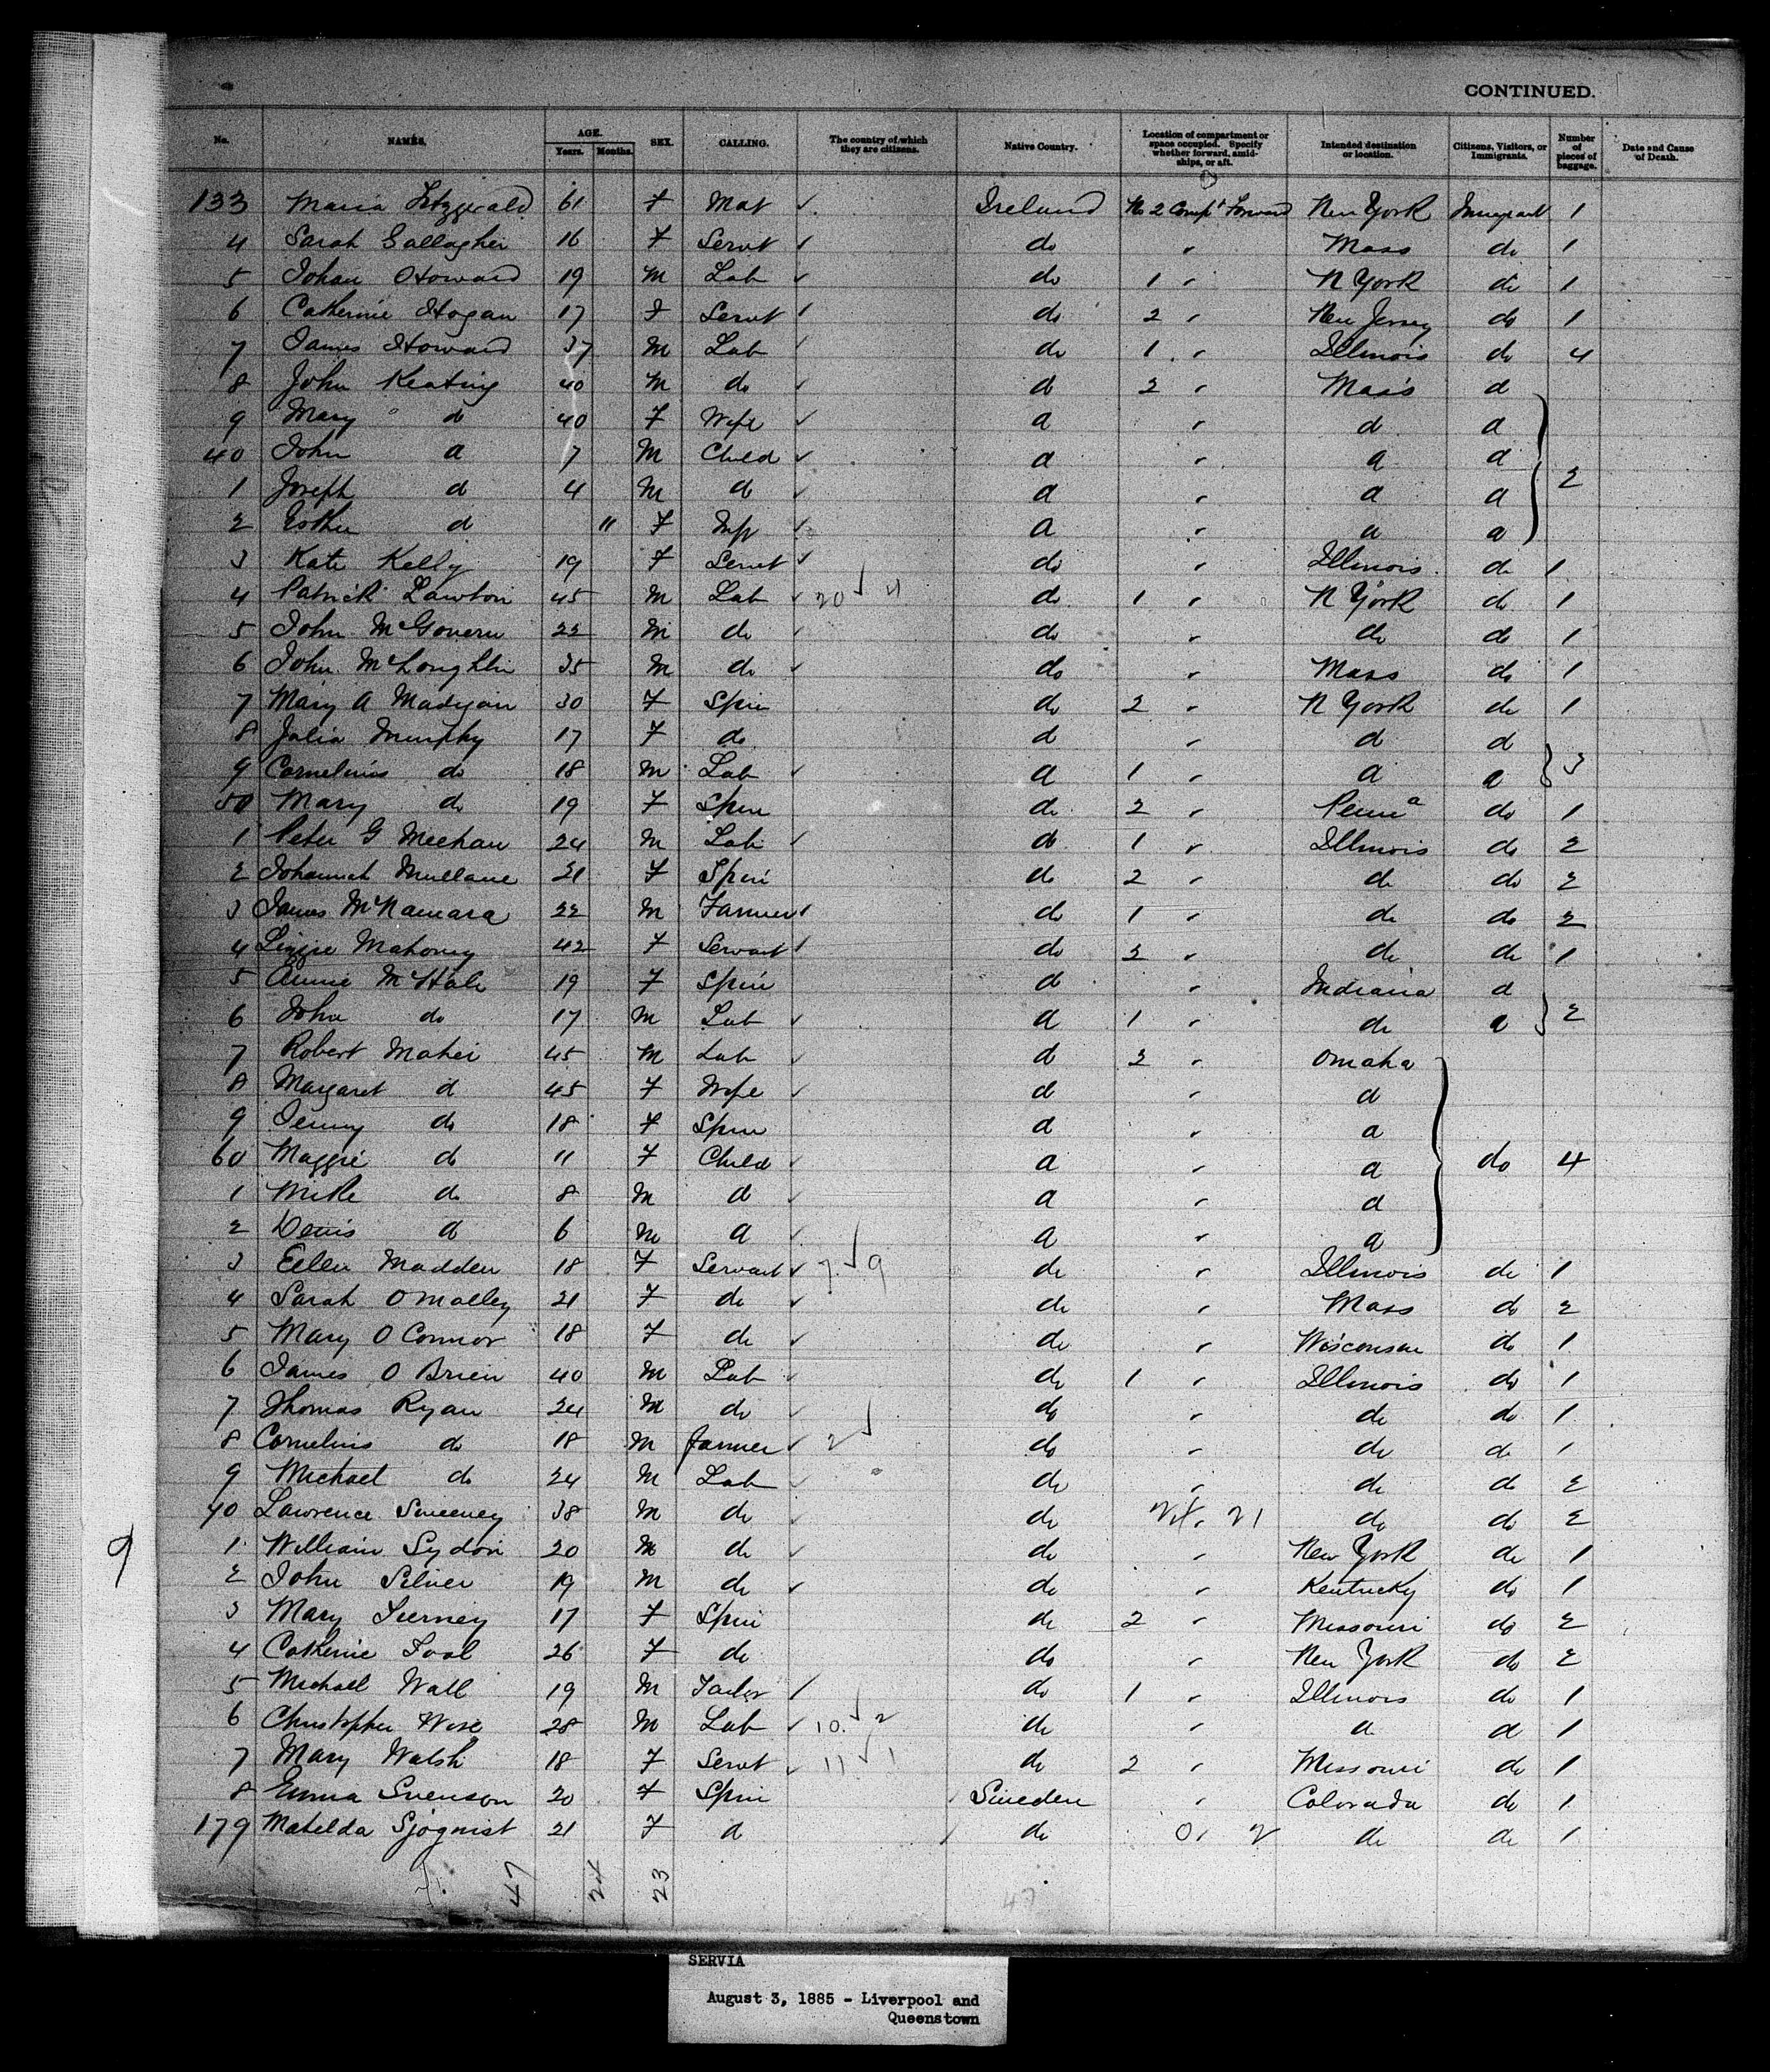 CONTINUED.
No. NAMES. AGE. Years. Months. SEX. CALLING. The country of which they are citizens. Native Country. Location of compartment or space occupied. Specify whether forward, amidships, or aft. Intended destination or location. Citizens, Visitors, or Immigrants. Number of pieces of baggage. Date and Cause of Death.
133 Maria Fitzgerald 61 F Mat Ireland No 2 Compt Forward New York Immigrant 1
4 Sarah Gallagher 16 F Servt do " Mass do 1
5 Johan Howard 19 M Lab do 1 " N York do 1
6 Catherine Hogan 17 F Servt do 2 " New Jersey do 1
7 James Howard 37 M Lab do 1 " Illinois do 4
8 John Keating 40 M do do 2 " Mass do
9 Mary do 40 F Wife do " do do
40 John do 7 M Child do " do do
1 Joseph do 4 M do do " do do 2
2 Esther do 11 F Inf do " do do
3 Kate Kelly 19 F Servt do " Illinois do 1
4 Patrick Lawton 45 M Lab 20 4 do 1 " N York do 1
5 John McGovern 22 M do do " do do 1
6 John McLoughlin 35 M do do " Mass do 1
7 Mary A Madigan 30 F Spin do 2 " N York do 1
8 Julia Murphy 17 F do do " do do
9 Cornelius do 18 M Lab do 1 " do do 3
50 Mary do 19 F Spin do 2 " Penna do 1
1 Peter G Meehan 24 M Lab do 1 " Illinois do 2
2 Johannah Mullane 21 F Spin do 2 " do do 2
3 James McNamara 22 M Farmer do 1 " do do 2
4 Lizzie Mahoney 42 F Servant do 2 " do do 1
5 Annie McHale 19 F Spin do " Indiana do
6 John do 17 M Lab do 1 " do do 2
7 Robert Maher 45 M Lab do 2 " Omaha
8 Margaret do 45 F Wife do " do
9 Jenny do 18 F Spin do " do
60 Maggie do 11 F Child do " do do 4
1 Mike do 8 M do do " do
2 Denis do 6 M do do " do
3 Ellen Madden 18 F Servant 7 9 do " Illinois do 1
4 Sarah OMalley 21 F do do " Mass do 2
5 Mary O Connor 18 F do do " Wisconsin do 1
6 James O Brien 40 M Lab do 1 " Illinois do 1
7 Thomas Ryan 24 M do do " do do 1
8 Cornelius do 18 M farmer 2 do " do do 1
9 Michael do 24 M Lab do " do do 2
70 Lawrence Sweeney 38 M do do " 21 do do 2
1 William Sydon 20 M do do " New York do 1
2 John Silver 19 M do do " Kentucky do 1
3 Mary Tierney 17 F Spin do 2 " Missouri do 2
4 Catherine Toal 26 F do do " New York do 2
5 Michael Wall 19 M Tailor do 1 " Illinois do 1
6 Christopher Wise 28 M Lab 10 2 do " do do 1
7 Mary Walsh 18 F Servt 11 1 do 2 " Missouri do 1
8 Emma Svenson 20 F Spin Sweden " Colorado do 1
179 Matelda Sjognist 21 F do do 0 2 do do 1
47 24 23 47
9
SERVIA
August 3, 1885 - Liverpool and
Queenstown